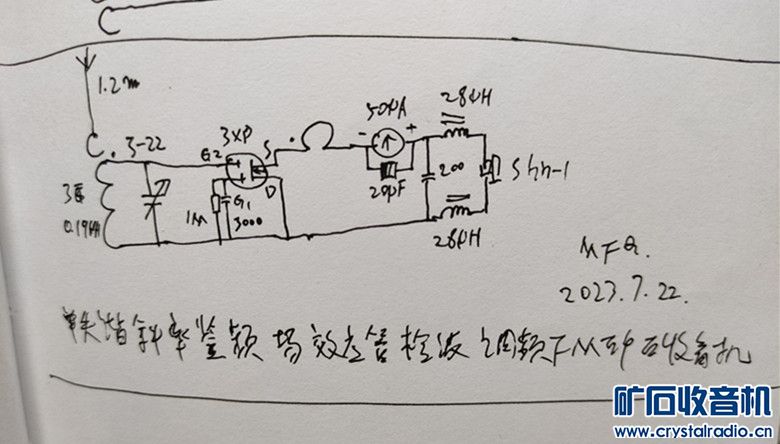 1.2m
C. 3-22
3XP
G2
S
D
G1
1M
3000
50μA
- +
20μF
28μH
200
28μH
0.19
MFQ.
2023.7.22.
单谐斜率鉴频场效应管检波调频FM矿石收音机
矿石收音机
www.crystalradio.cn